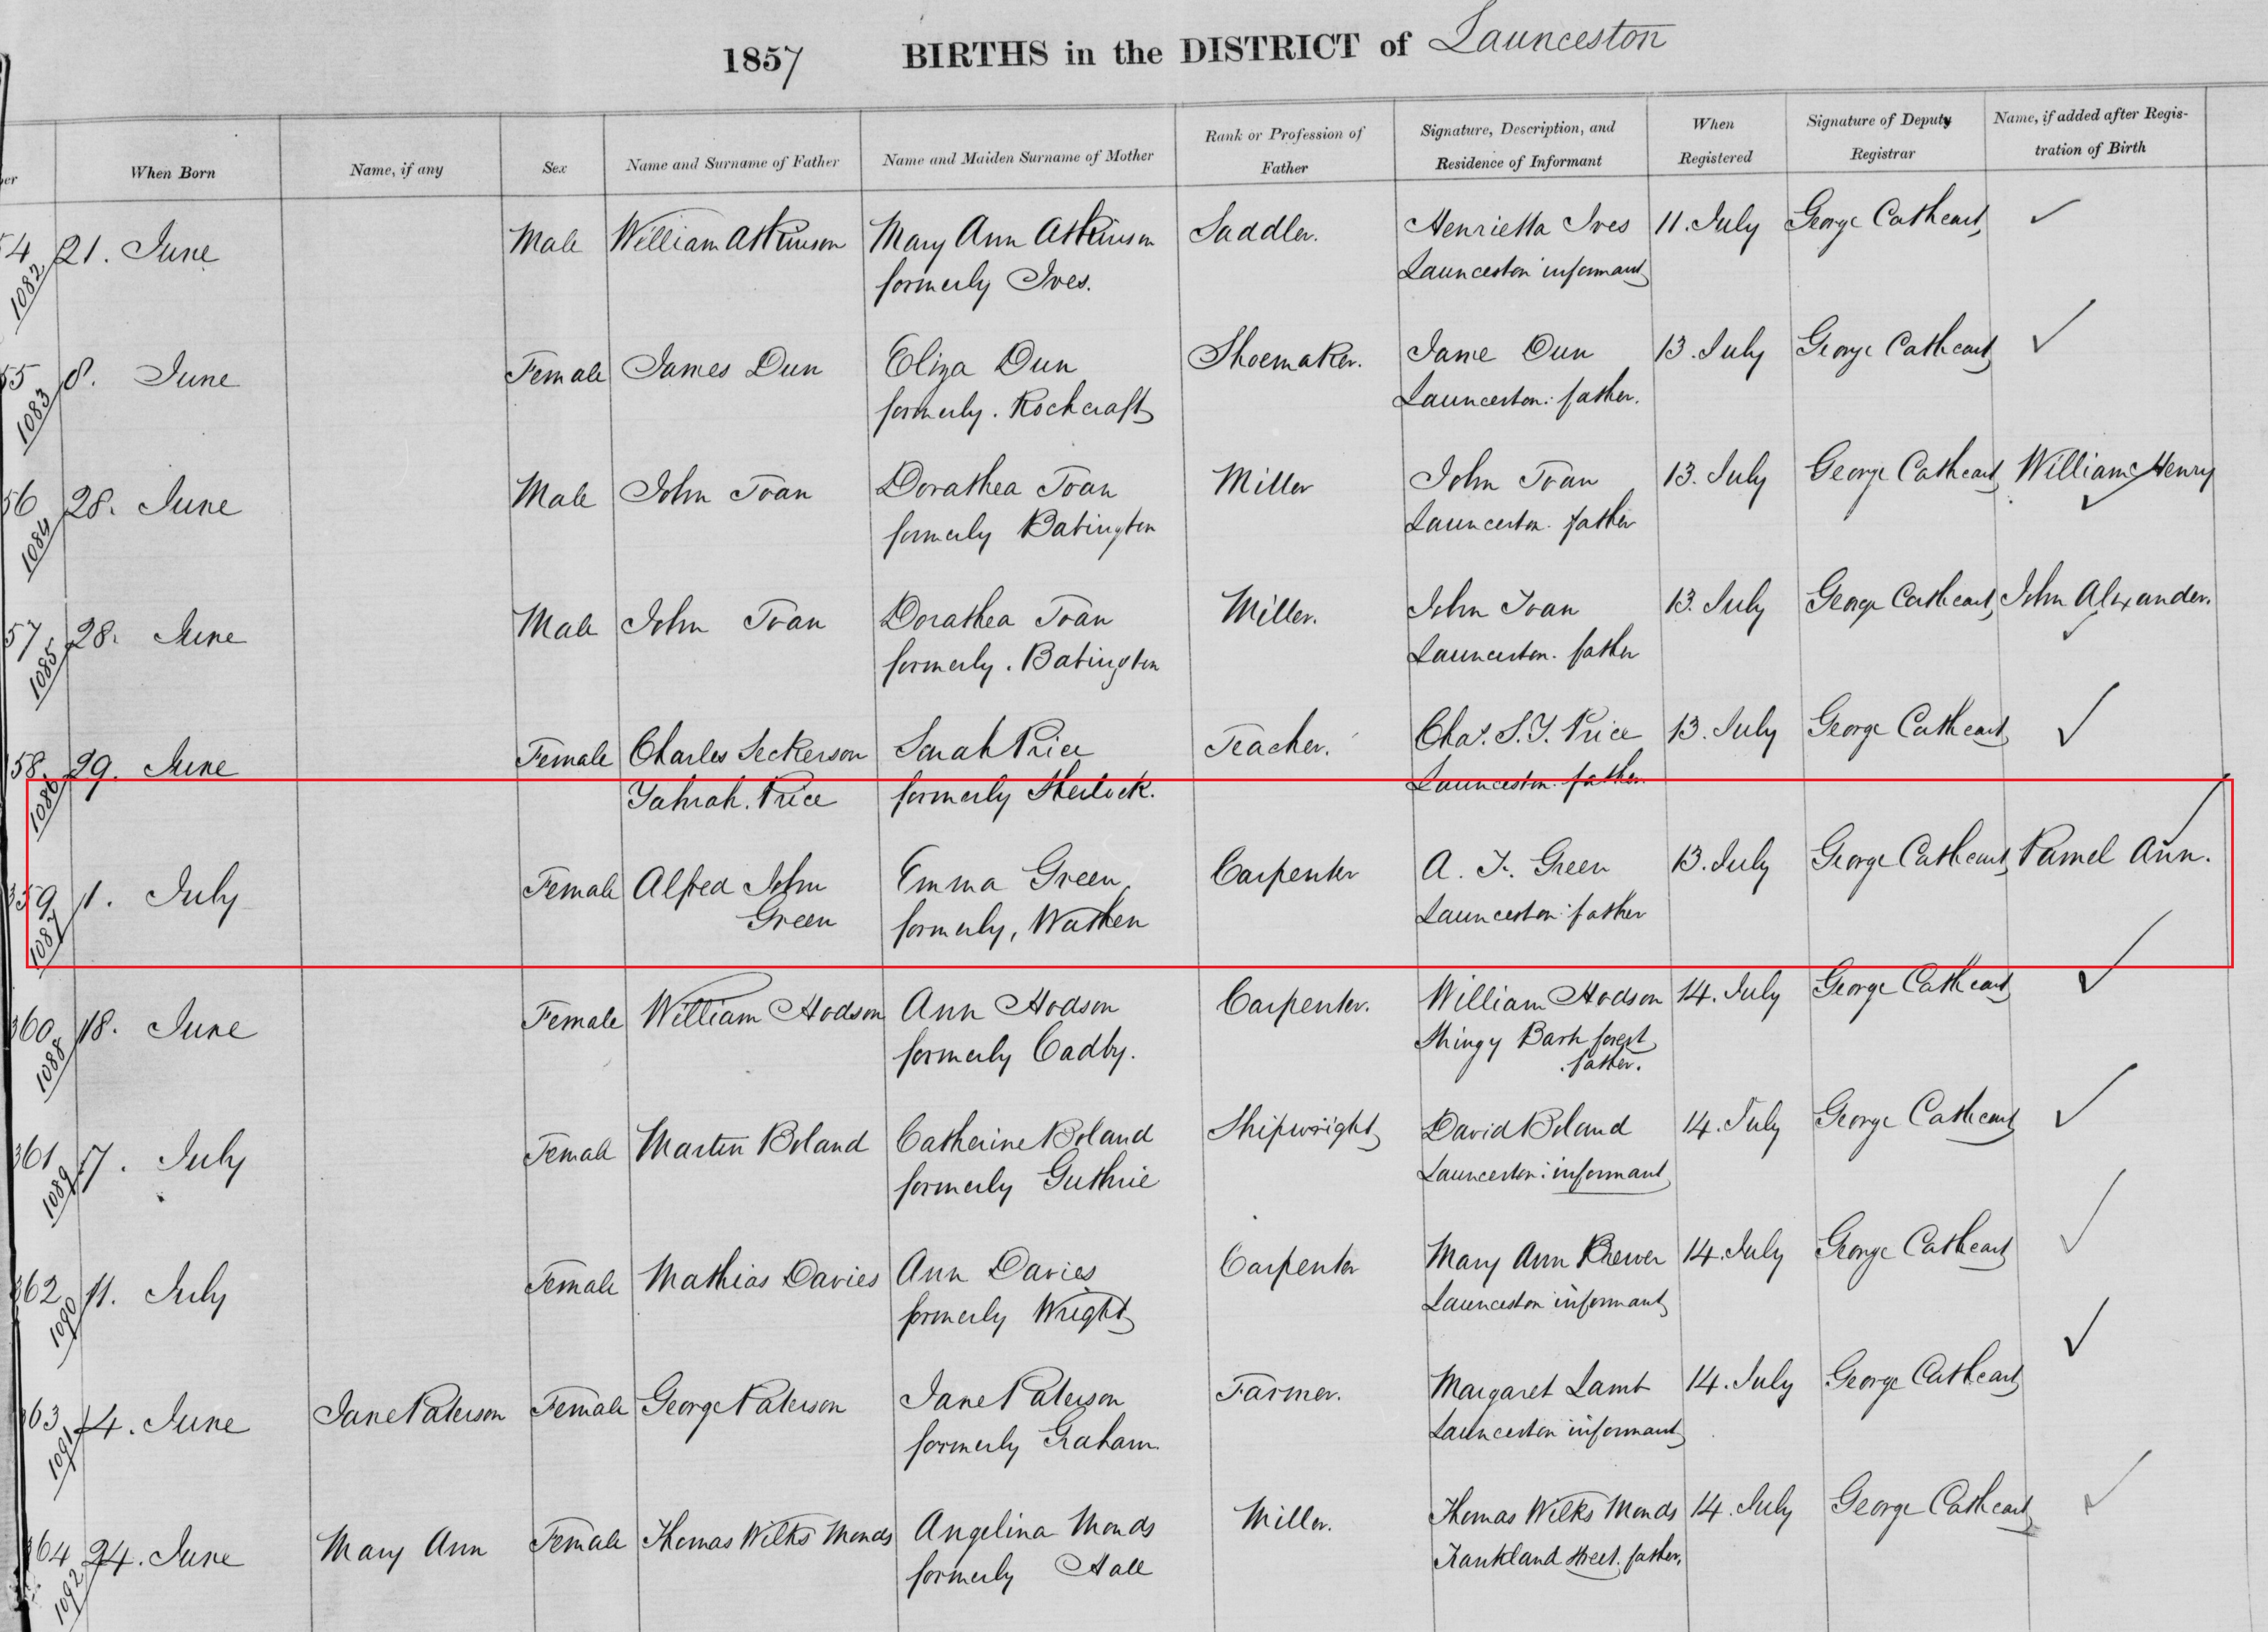 1857 BIRTHS in the DISTRICT of Launceston
When Born Name, if any Sex Name and Surname of Father Name and Maiden Surname of Mother Rank or Profession of Father Signature, Description, and Residence of Informant When Registered Signature of Deputy Registrar Name, if added after Registration of Birth
54 21. June Male William Atkinson Mary Ann Atkinson Saddler. Henrietta Ives 11. July George Cathcart
1082 formerly Ives. Launceston informant
55 8. June Female James Dun Eliza Dun Shoemaker. Jame Dun 13. July George Cathcart
1083 formerly. Rochcraft Launceston. father.
56 28. June Male John Tvan Dorathea Tvan Miller John Tvan 13. July George Cathcart William Henry
1084 formerly Babington Launceston. father
57 28. June Male John Tvan Dorathea Tvan Miller. John Tvan 13. July George Cathcart John Alexander.
1085 formerly. Babington Launceston. father
58 29. June Female Charles Seckerson Sarah Price Teacher. Chas. S. Y. Price 13. July George Cathcart
1086 Price formerly Sherlock. Launceston. father.
359 1. July Female Alfred John Emma Green Carpenter A. J. Green 13. July George Cathcart Pamel Ann.
1087 Green formerly, Wathen Launceston father
360 18. June Female William Hodson Ann Hodson Carpenter. William Hodson 14. July George Cathcart
1088 formerly Cadby. Stringy Bark forest
father.
361 7. July Female Martin Boland Catherine Boland Shipwright David Boland 14. July George Cathcart
1089 formerly Guthrie Launceston: informant
362 11. July Female Mathias Davies Ann Davies Carpenter Mary Ann Brewer 14. July George Cathcart
1090 formerly Wright Launceston informant
363 14. June Jane Paterson Female George Paterson Jane Paterson Farmer. Margaret Lamb 14. July George Cathcart
1091 formerly Graham. Launceston informant
364 24. June Mary Ann Female Thomas Wilks Monds Angelina Monds Miller. Thomas Wilks Monds 14. July George Cathcart
1092 formerly Hall Frankland street. father.